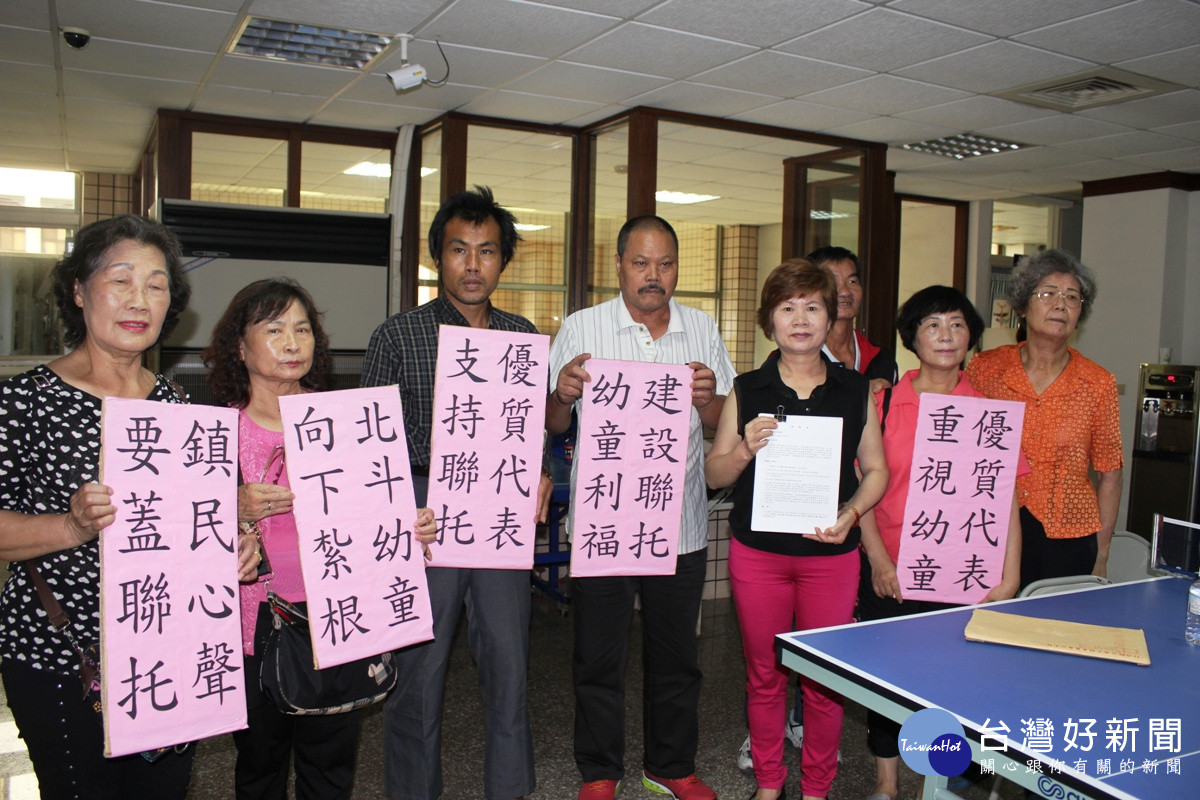 鎮民心聲
要蓋聯托
北斗幼童
向下紮根
優質代表
支持聯托
建設聯托
幼童利福
優質代表
重視幼童
TaiwanHot
台灣好新聞
關心跟你有關的新聞